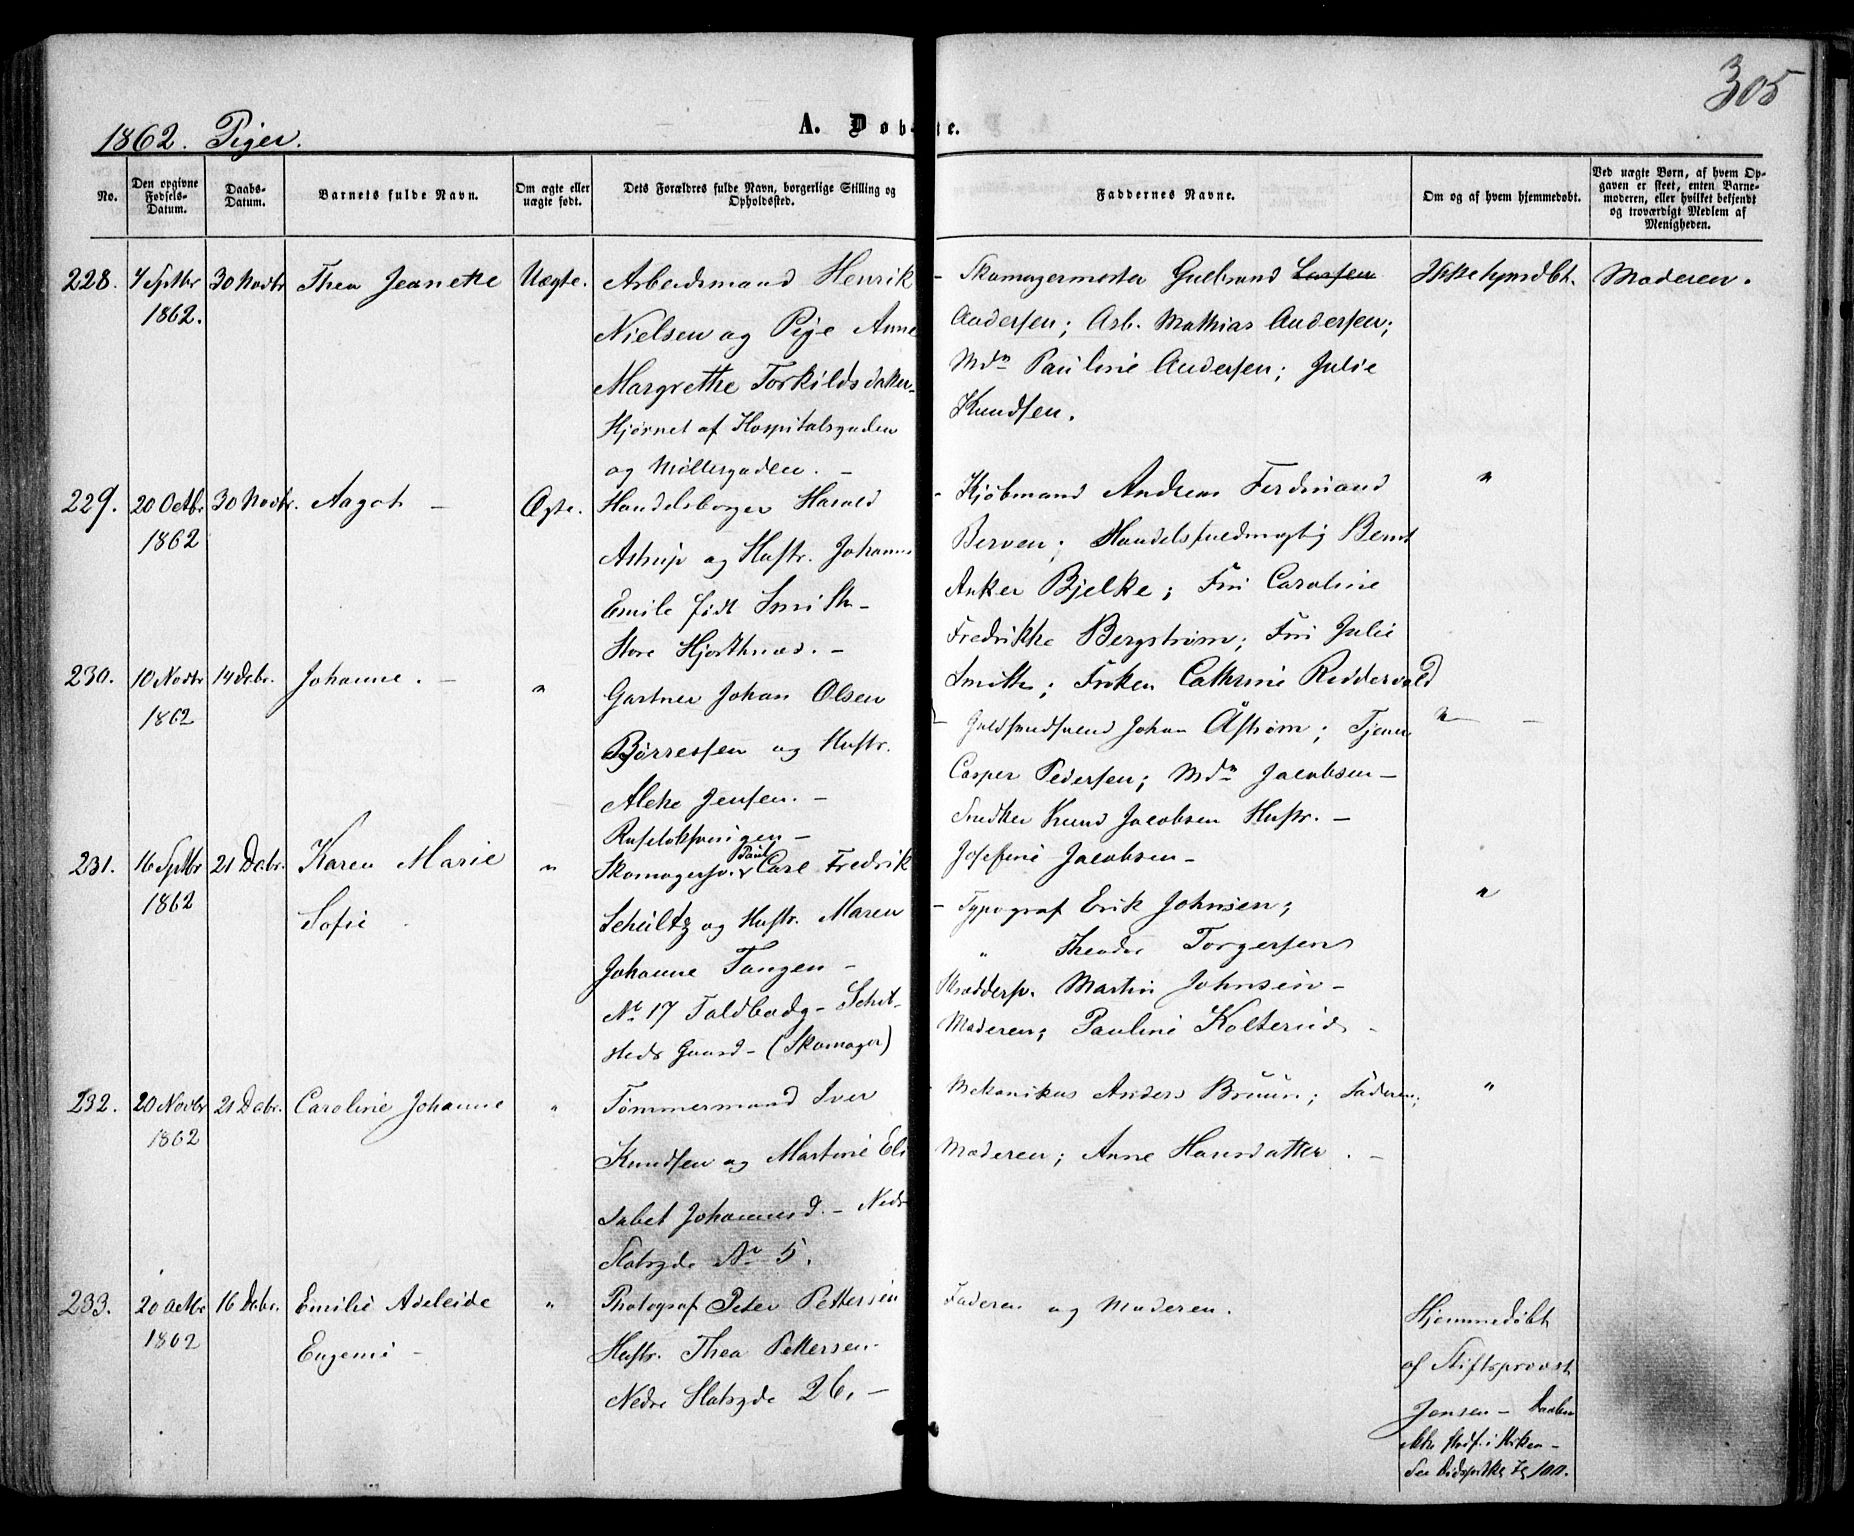 305
1862. Piger.
A. Døb te.
No.
Den opgivne Fødsels-Datum.
Daabs-Datum.
Barnets fulde Navn.
Om ægte eller uægte født.
Dets Forældres fulde Navn, borgerlige Stilling og Opholdssted.
Faddernes Navne.
Om og af hvem hjemmedøbt.
Ved uægte Børn, af hvem Opgaven er skeet, enten Barnemoderen, eller hvilket bekjendt og troværdigt Medlem af Menigheden.
228. 7 Septbr 1862. 30 Novbr Thea Jeanette Uægte.
Arbeidsmand Henrik
Nielsen og Pige Anne
Margrethe Torkildsdatter
Hjørnet af Hospitalsgaden
og Møllergaden. -
- Skomagermester Gulbrand Larsen
Andersen; Arb. Mathias Andersen;
Mdm Pauline Andersen; Julie
Knudsen.
Ikke hjmdbt. Moderen.
229. 20 Octbr 1862 30 Novbr. Aagot - Ægte.
Handelsborger Harald
Astrup og Hustr. Johanne
Emile født Smith -
Store Hjorthnæs. -
- Kjøbmand Andreas Ferdinand
Berven; Handelsfuldmægtig Bernt
Anker Bjelke; Fru Caroline
Fredrikke Bergstrøm; Fru Julie
Smith; Frøken Cathrine Reddervold
"
230. 10 Novbr 1862 14 Decbr. Johanne. - "
Gartner Johan Olsen
Børressen og Hustr.
Alette Jensen. -
Ruseløkveien -
Guldsmedsvend Johan Åstrøm; Tjener
Casper Pedersen; Mdm Jacobsen -
Snedker Knud Jacobsen Hustr. -
Josefine Jacobsen -
" -
231. 16 Septbr 1862 21 Decbr. Karen Marie Sofie. "
Skomagersv. Paul Carl Fredrik
Schültz og Hustr. Maren
Johanne Tangen -
No 17 Toldbodg - Schit-
steds Gaard - (Skomager)
- Typograf Erik Johnsen;
" Theodor Torgersen
Skræddersv. Martin Johnsen -
Moderen; Pauline Kolterud -
"
232. 20 Novbr 1862 21 Decbr. Caroline Johanne "
Tømmermand Iver
Knudsen og Martine Eli
sabet Johannesd. - Nedr
Slotsgde No 5.
- Mekanikus Anders Bruun; Faderen;
Moderen; Anne Hansdatter. -
"
233. 20 Octbr 1862 16 Decbr. Emilie Adeleide Eugenie - "
Photograf Peter Pettersen
Hustr. Thea Pettersen.
Nedre Slotsgde 26. -
Faderen og Moderen.
Hjemmedøbt
af Stiftsprovst
Jensen - Daaben
ikke stadf. i Kirken -